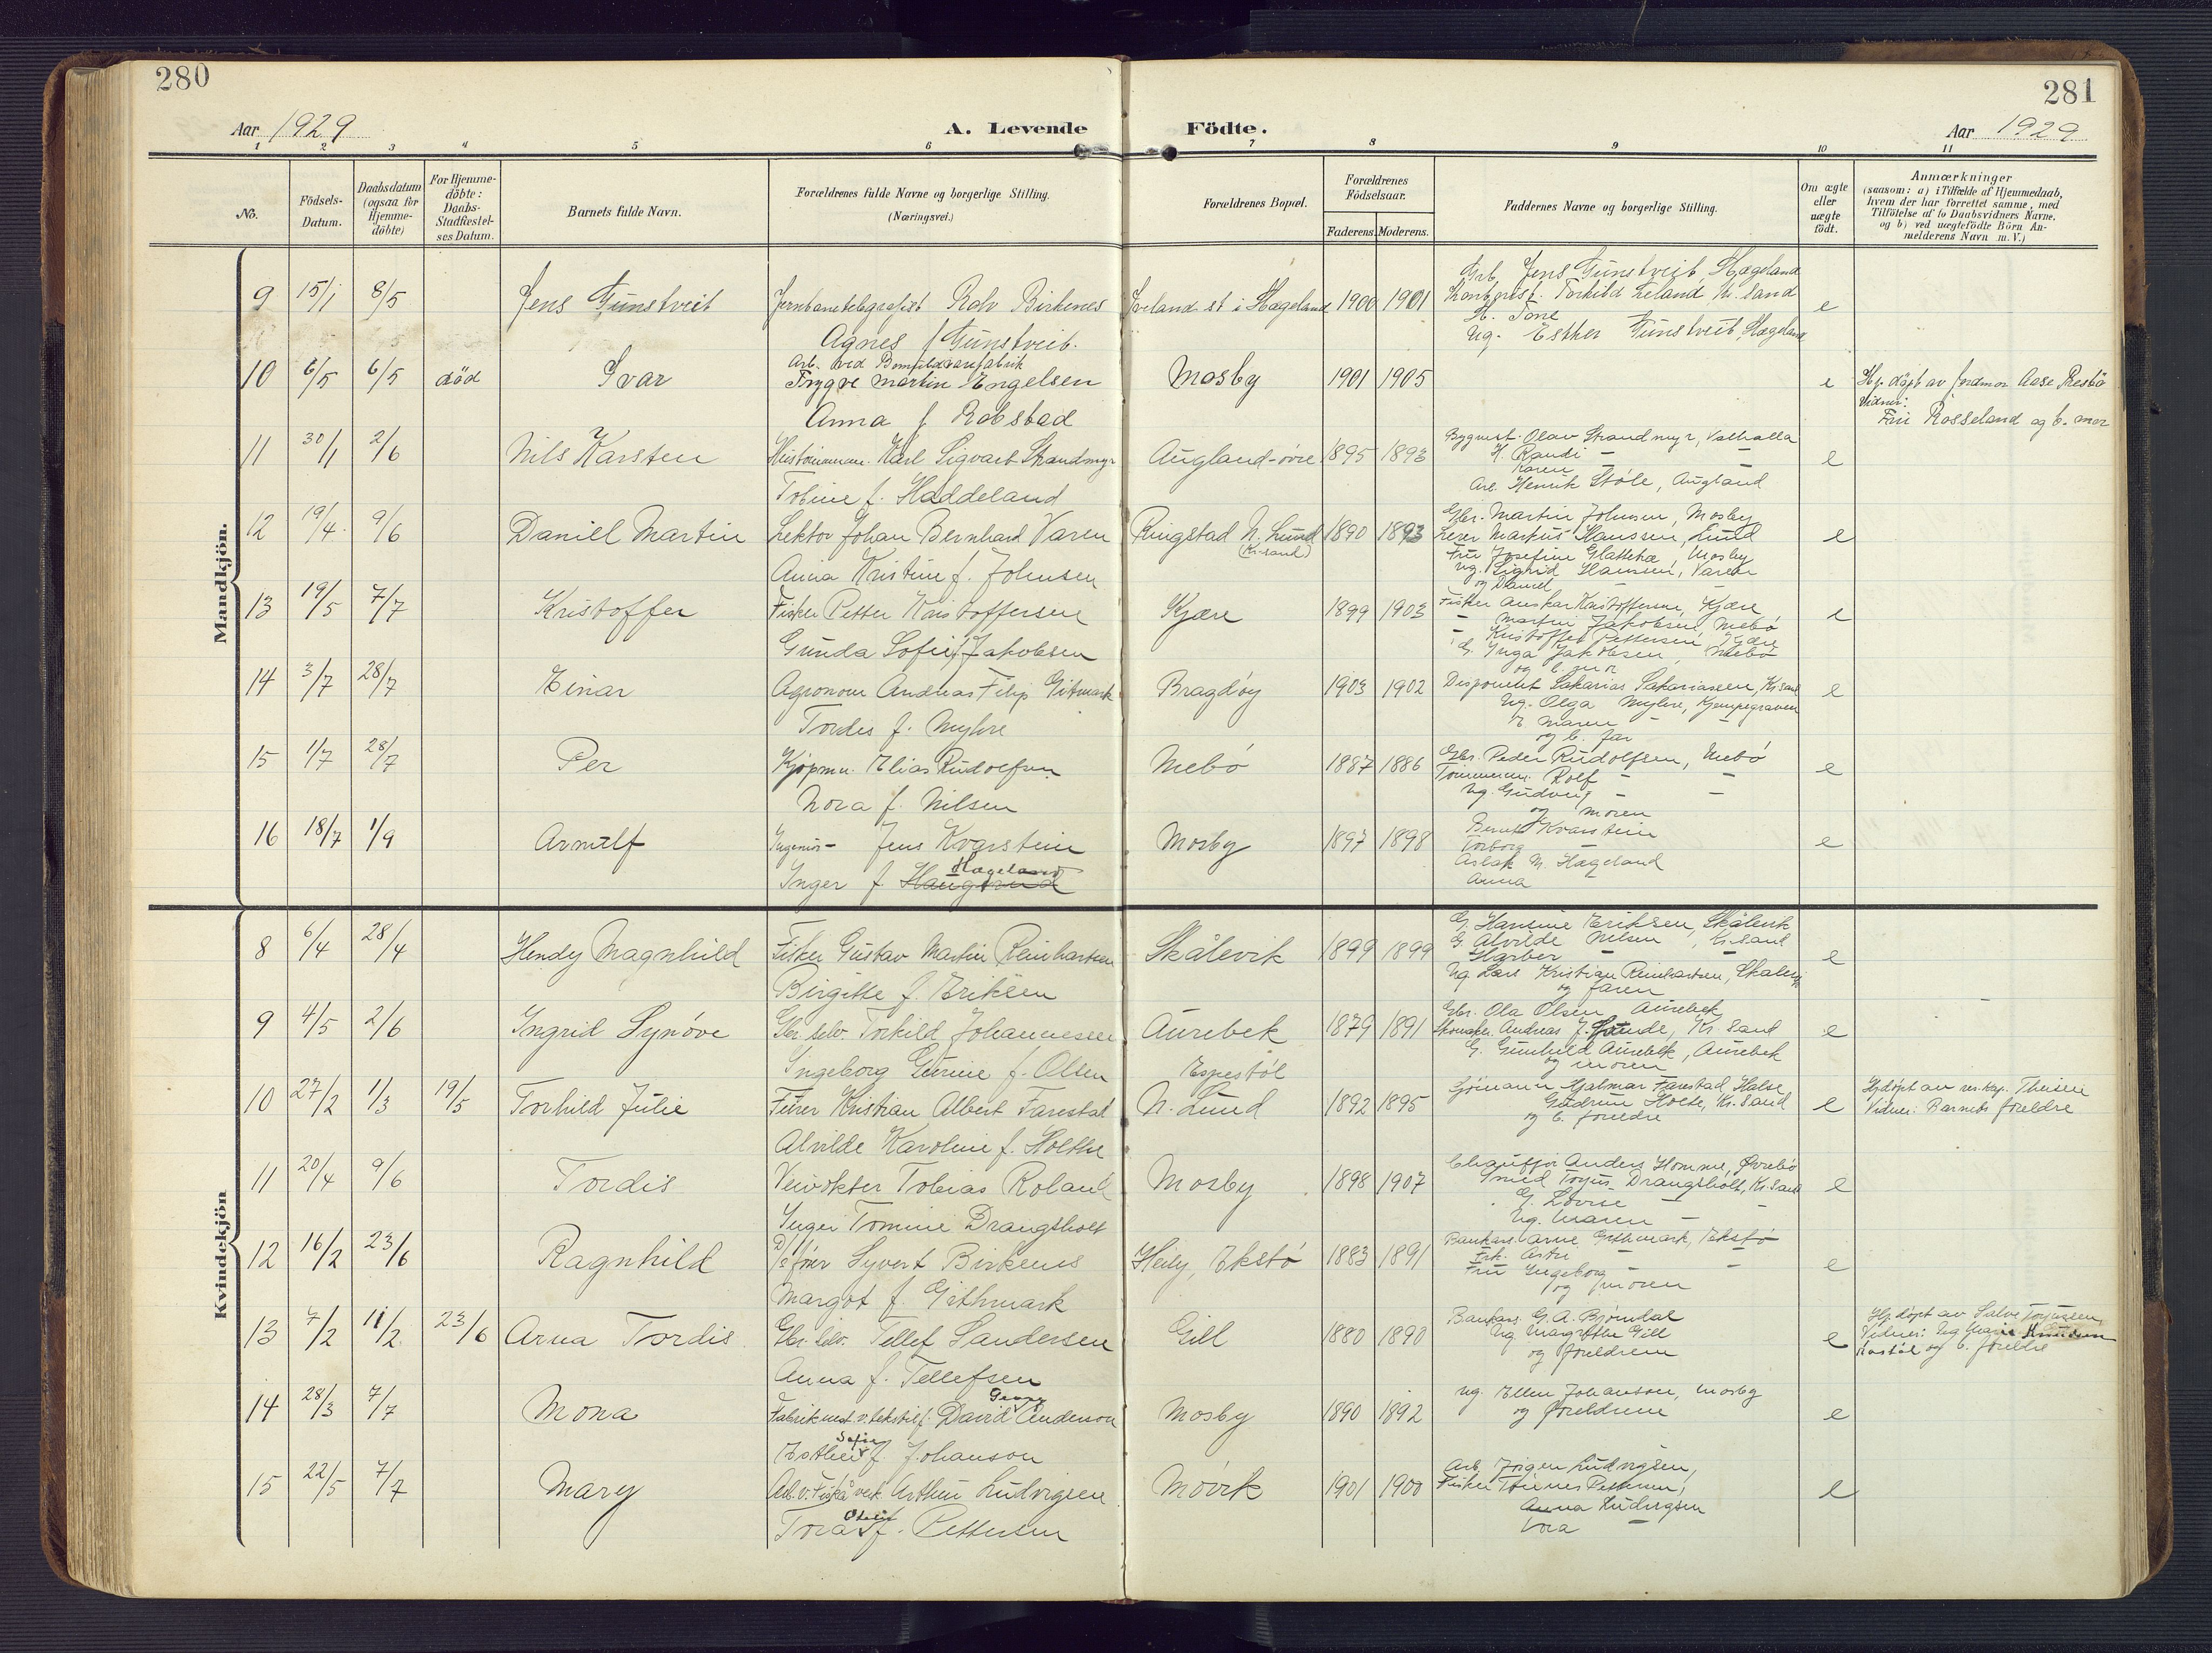 280
281
Aar 1929
A. Levende Födte.
Aar 1929
1 2 3 4 5 6 7 8 9 10 11
No.
Födsels-Datum.
Daabsdatum (ogsaa for Hjemme-döbte)
For Hjemme-döbte: Daabs-Stadfæstel-ses Datum.
Barnets fulde Navn.
Forældrenes fulde Navne og borgerlige Stilling. (Næringsvei.)
Forældrenes Bopæl.
Forældrenes Födselsaar.
Faderens. Moderens.
Faddernes Navne og borgerlige Stilling.
Om ægte eller uægte födt.
Anmærkninger
(saasom: a) i Tilfælde af Hjemmedaab,
hvem der har forrettet samme, med
Tilföielse af to Daabsvidners Navne,
og b) ved uægtefödte Börn An-
melderens Navn m. V.)
Mandkjön.
9 15/1 8/5 Jens Gunstveit Jernbanetelegrafist Rolv Birkenes Iveland st i Hægeland 1900 1901 e
Agnes f Gunstveit.
Jens Gunstveit, Hægeland
Torkild Leland Kr. sand
H. Tone
Ug. Esther Gunstveit, Hægeland
10 6/5 6/5 död Ivar Mosby 1901 1905 e
Arb. ved
Trygve Martin Engelsen
Anna f Robstad
Hj. döpt av jordmor Aase Presbö
Vidner:
Fru Rosseland og b. mor
11 30/1 2/6 Nils Karsten Karl Sigvart Strandmyr Augland-övre 1895 1893 e
Tobine f. Haddeland
Bygmest. Olav Strandmyr, Valhalla
H. Randi - -
Karen - -
Arb. Henrik Stöle, Augland
12 19/4 9/6 Daniel Martin Lektor Johan Bernhard Varen Ringstad N. Lund 1890 1893 e
(Kr.sand)
Anna Kristine f. Johnsen
Gbr. Martin Johnsen, Mosby
Markus Hanssen, Lund
Fru Josefine Glattetræ, Mosby
Ug. Sigrid Hanssen, Varen
og Daniel -
13 19/5 7/7 Kristoffer Fisker Petter Kristoffersen Kjære 1899 1903 e
Gunda Sofie f Jakobsen
Fisker Anskar Kristoffersen, Kjære
- Martin Jakobsen Nebö
- Kristoffer Pettersen, Kjære
G. Inga Jakobsen, Nebö
og b. mor
14 3/7 28/7 Einar Agronom Andreas Filip Gitmark Bragdöy 1903 1902 e
Tordis f. Myhre
Disponent Sakarias Sakariassen, Kr sand
Ug. Olga Myhre, Kjempegraven
Maren - -
og b. far
15 1/7 28/7 Per Kjöpm. Elias Rudolfsen Nebö 1887 1886 e
Nora f. Nilsen
Gbr. Peder Rudolfsen, Nebö
Tömmerm. Rolf - -
Ug. Gudveig - -
og moren
16 18/7 1/9 Arnulf Ingeniör Jens Kvarstein Mosby 1897 1898 e
Hægeland
Inger f
Bernt Kvarstein
Torborg -
Aslak N. Hægeland
Anna -
Kvindekjön
8 6/4 28/4 Hendy Magnhild Fisker Gustav Martin Reinhartsen Skålevik 1899 1899 e
Birgitte f. Eriksen
G. Hansine Eriksen, Skålevik
G. Alvilde Nilsen, Kr. sand
Harber - -
Ug Lars Kristian Reinhartsen, Skålevig
og faren
9 4/5 2/6 Ingrid Synöve Gbr. selv. Torkild Johannessen Aurebek 1879 1891 e
Ingeborg Gurine f. Olsen
Gbr. Ola Olsen Aurebek
Skomaker Andreas J. Kr. Sand
G. Gunhild Aurebek, Aurebek
og moren
10 27/2 1/3 19/5 Torhild Julie Fürer Kristian Albert Farestad Espestöl N. Lund 1892 1895 e
Alvilde Karoline f. Holthe
Sjömann Hjalmar Farestad Halse
Gudrun Holte, Kr. Sand
og b. foreldre
Hj döpt av res. kap. Theisen
Vidner: Barnets foreldre
11 20/4 9/6 Tordis Veivokter Tobias Roland Mosby 1898 1907 e
Inger Tomine Drangsholt
Chaufför Anders Homme, Övrebö
Smed Torjus Drangsholt, Kr. Sand
G. Lovise - -
Ug. Maren -
12 16/2 23/6 Ragnhild D/s förer Syvert Birkenes Hely, Ekstö 1883 1891 e
Margot f. Githmark
Bankass. Arne Githmark, Ekstö
Frk. - -
Fru Ingeborg - -
og moren
13 7/2 11/2 23/6 Arna Tordis Gbr. selv. Tellef Sandersen Gill 1880 1890 e
Anna f. Tellefsen
Bankass. G. A. Björndal
Ug Margrethe Gill
og foreldrene
Hj. döpt av Salve Torjussen
Vidner: Ug Marie Knudsen
og b. foreldre
14 28/3 7/7 Mona Fabrikmest. v. tekstilf. David Georg Anderson Mosby 1890 1892 e
Esther Sofie f. Johanson
Ug. Ellen Johanson, Mosby
og foreldrene
15 22/5 7/7 Mary Arb. v. Fiskå verk Arthur Ludvigsen Mövik 1901 1900 e
Tora Otelie f. Pettersen
Arb. Jörgen Ludvigsen,
Fisker Tönnes Pettersen,
Anna Ludvigsen
-